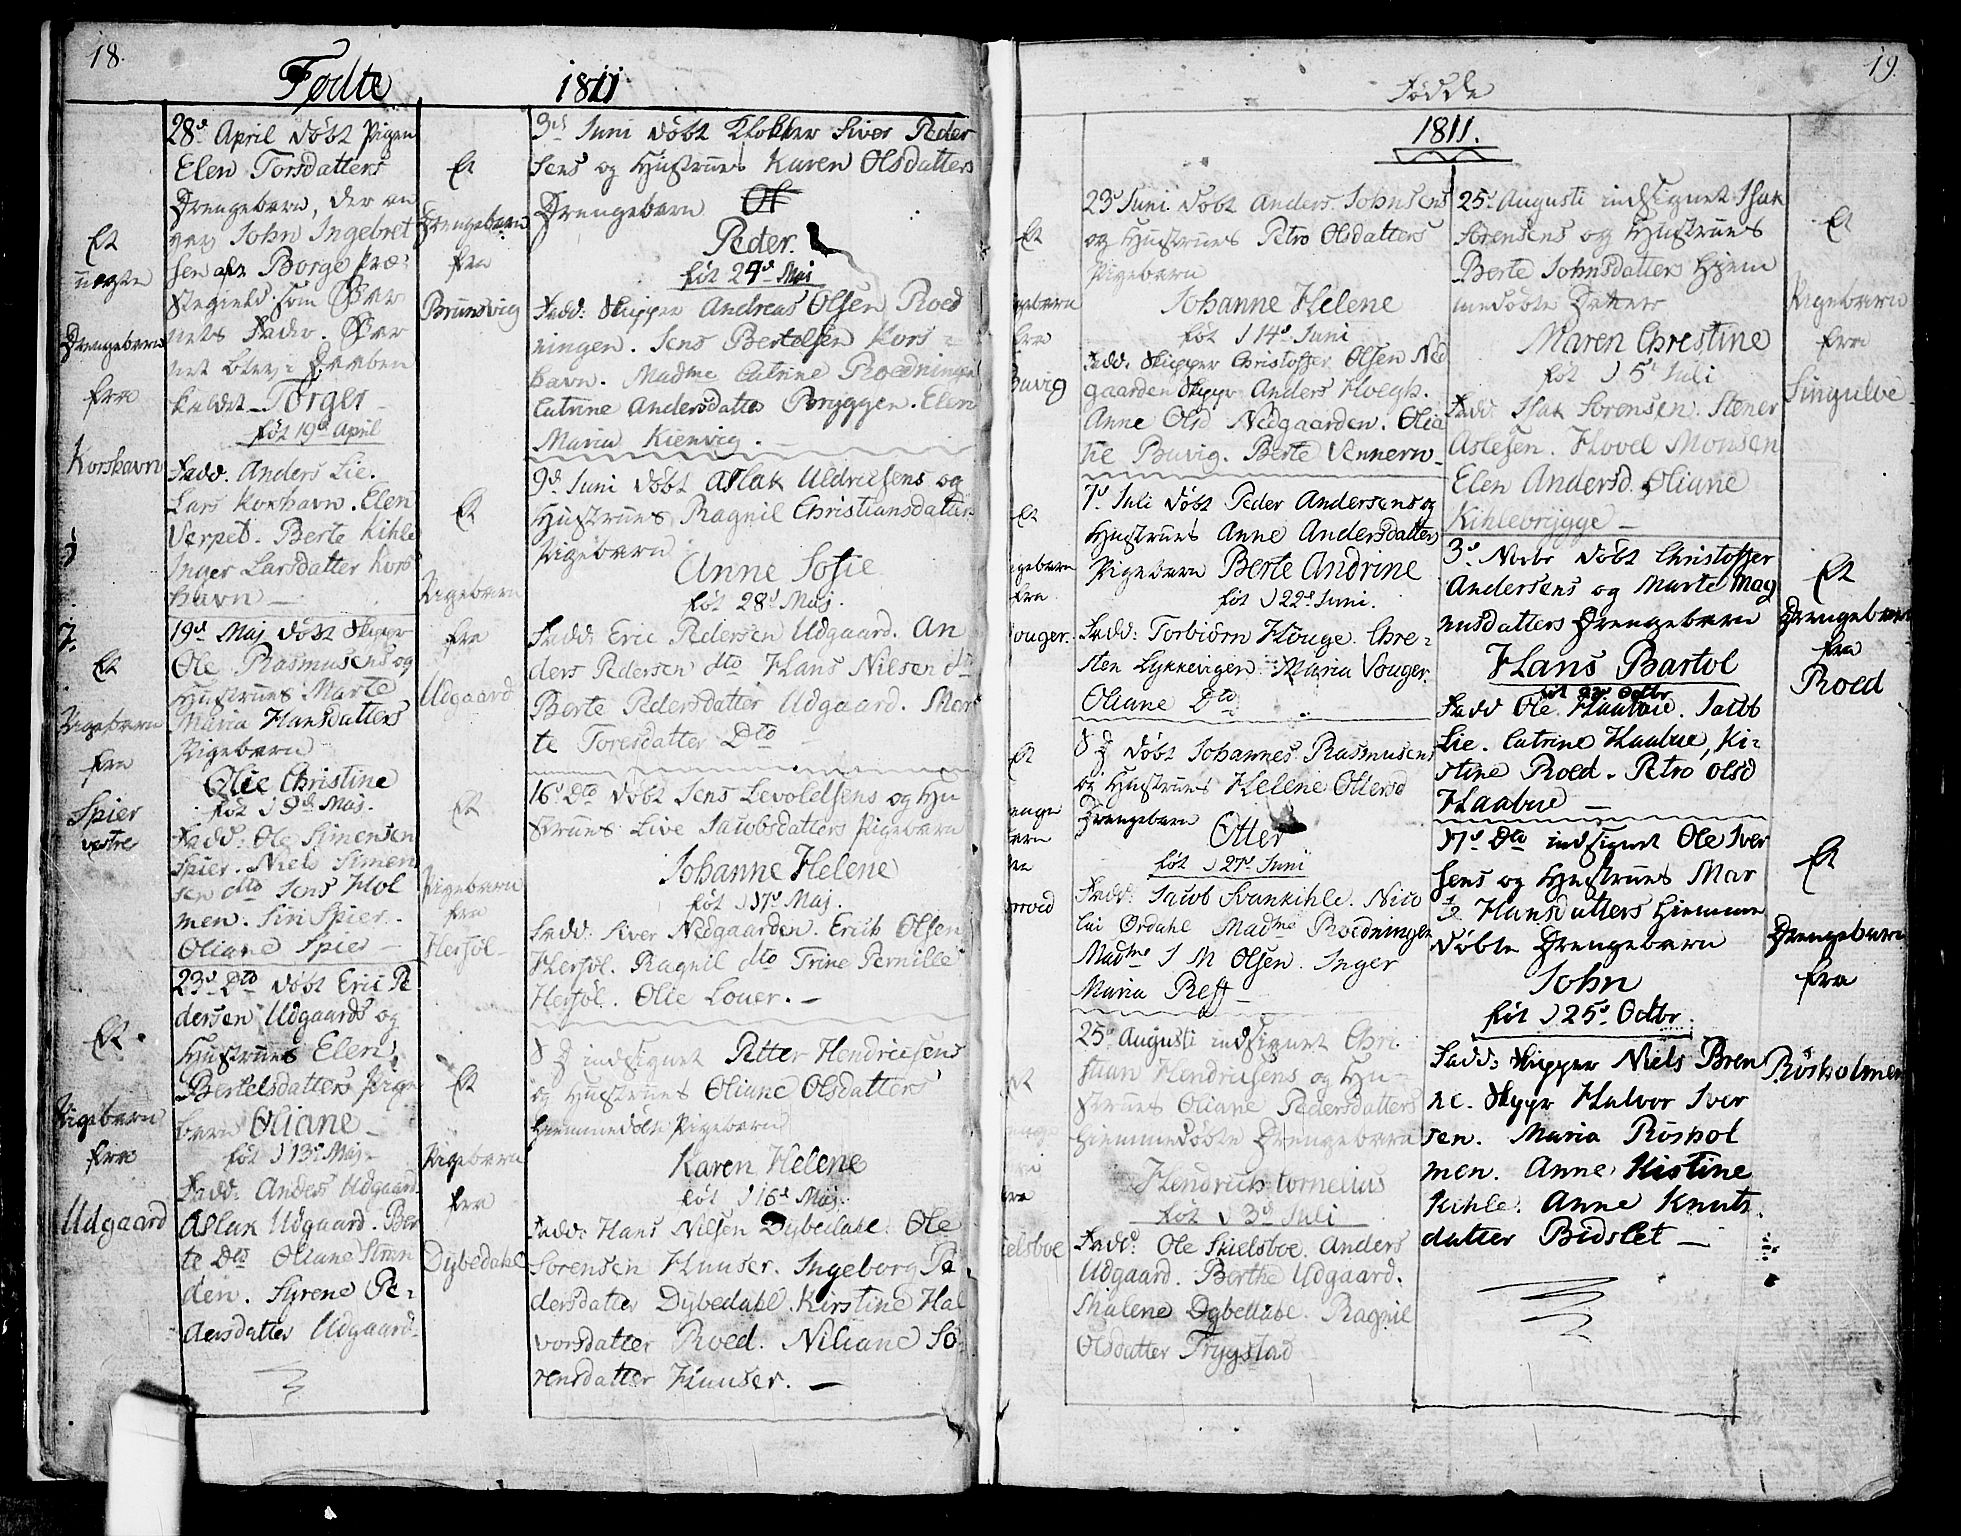 18.
Fødte
1811
Et
uægte
Drengebarn
fra
Korshavn
28d April døbt Pigen
Elen Torsdatters
Drengebarn, der an
gav John Ingebret
sen afr Borge Præ-
stegield som Bar
nets Fader. Bar
net blev i Daaben
kaldet Torger
føt 19d April
Fadd. Anders Lie.
Lars Korshavn. Elen
Verpet. Berte Kihle
Inger Larsdatter Kors
havn —
Et
Pigebarn
fra
Spier
vestre
19d Maj døbt Skipper
Ole Rasmusens og
Hustrues Marte
Maria Hansdatters
Pigebarn
Olie Christine
føt d 9d Maj.
Fadd: Ole Simensen
Spier. Niels Simen
sen dto Jens Hol
men. Siri Spier.
Oliane Spier —
Et
Pigebarn
fra
Udgaard
23d Dto døbt Eric Pe
dersen Udgaards og
Hustrues Elen
Bertelsdatters Pige
barn Oliane —
føt d 13d Maj —
Fadd: Anders Udgaard
Aslak Udgaard. Ber
te Dto Oliane Stran
den. Syrene Pe-
dersdatter Udgaard.
Et
Drengebarn
fra
Brunsvig
3d Juni døbt Klokker Siver Peder
sens og Hustrues Karen Olsdatters
Drengebarn Ol
Peder.
føt 24d Maj
Fadd: Skipper Andreas Olsen Roed
ningen. Jens Bertelsen Kors-
havn. Madme Catrine Roedningen
Catrine Andersdatter Bryggen. Elen
Maria Kienvig. —
Et
Pigebarn
fra
Udgaard
9d Juni døbt Aslak Uldricsens og
Hustrues Ragnil Christiansdatters
Pigebarn
Anne Sofie
føt 28d Maj.
Fadd: Eric Pedersen Udgaard. An
ders Pedersen dto Hans Nilsen dto
Berte Pedersdatter Udgaard. Mar
te Toresdatter Dto
Et
Pigebarn
fra
Herføl
16d Dto døbt Jens Levoldsens og Hu
strues Live Jacobsdatters Pigebarn
Johanne Helene
føt d 17d Maj.
Fadd: Siver Nedgaarden. Erick Olsen
Herføl. Ragnil dto Trine Pernille
Herføl. Olie Louer. —
Et
Pigebarn
fra
Dybedahl
indsignet Petter Hendricsens
og Hustrues Oliane Olsdatters
hiemmedøbte Pigebarn
Karen Helene
føt d 16d Maj.
Fadd: Hans Nilsen Dybedahl. Ole
Sorensen Huuser. Ingeborg Pe
dersdatter Dybedahl. Kirstine Hal
vorsdatter Roed. Niliane So-
rensdatter Huuser. —
19.
Fødde
1811.
Et
gebarn
fra
Buvig
23d Juni døbt Anders Johnsens
og Hustrues Petro Olsdatters
Pigebarn
Johanne Helene
føt d 14d Juni
Fadd: Skipper Christoffer Olsen Ned
gaarden Skippr Anders Hoegh.
Anne Olsd Nedgaarden. Olia
Buvig. Berte Vennero.
Et
igebarn
fra
Vouger.
7d Juli døbt Peder Andersens og
Hustrues Anne Andersdatters
Pigebarn Berte Andrine
føt d 22d Juni.
Fadd: Torbiørn Houge. Chre-
sten Lykkevigen. Maria Vouger.
Oliane Dto
Et
enge
arn
døbt Johannes Rasmusens
og Hustrues Helene Ottersd
Drengebarn
Otter
føt d 27d Juni
Fadd: Jacob Svankihle. Nico
lai Ørdahl Madme Roedningen
Madme J M Olsen. Inger
Maria Reff —
Et
enge
fra
ielsboe
25d Augusti indsignet Chri
stian Hendricsens og Hu-
strues Oliane Pedersdatters
hiemmedøbte Drengebarn
Hendrich Cornelius
føt d 3d Juli
Fadd: Ole Skielsboe. Anders
Udgaard. Berthe Udgaard.
Malene Dybedahl. Ragnil
Olsdatter Trygstad
25d Augusti indsignet Isak
Sorensens og Hustrues
Berte Johnsdatters hjem
medøbte Datter
Maren Chrestine
føt d 5d Juli
Fadd: Isak Sorensen. Stener
Aslesen. Hovel Monsen
Elen Andersd. Oliane
Kihlebrygge —
Et
Pigebarn
fra
Singulve
3d Novbr døbt Christoffer
Andersens og Marte Mag
nusdatters Drengebarn
Hans Bartol
føt 23d Octbr
Fadd Ole Haabue. Jacob
Lie. Catrine Haabue, Ki-
stine Roed. Petro Olsd
Haabue —
Et
Drengebarn
fra
Roed
17d Dto indsignet Ole Iver
sens og Hustrues Mar
te Hansdatters hiemme
døbte Drengebarn
John
føt d 25d Octbr.
Fadd: Skipper Niels Bren
ne. Skyppr Halvor Iver
sen. Maria Røshol
men. Anne Kistine
Kihle. Anne Knuts
datter Bidslet —
Et
Drengebarn
fra
Røsholmen